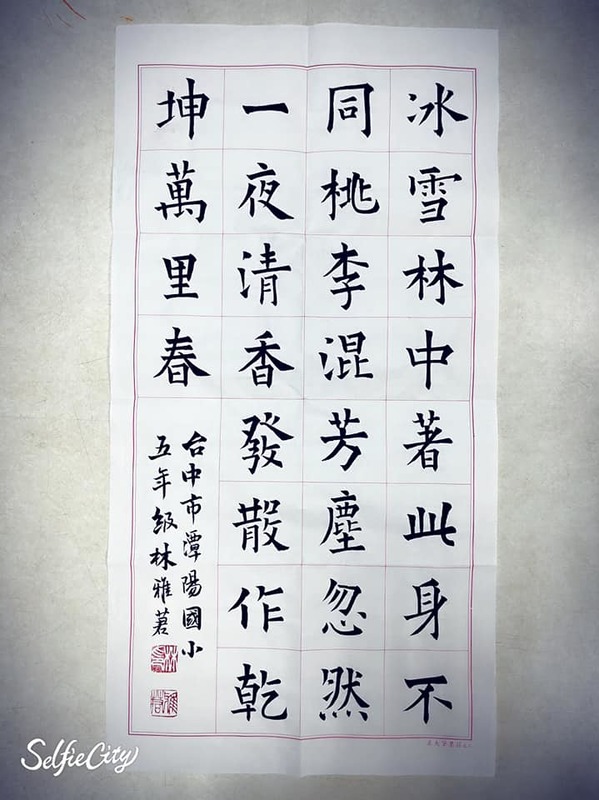 冰雪林中著此身不
同桃李混芳塵忽然
一夜清香發散作乾
坤萬里春
台中市潭陽國小
五年級林雅莙
SelfieCity